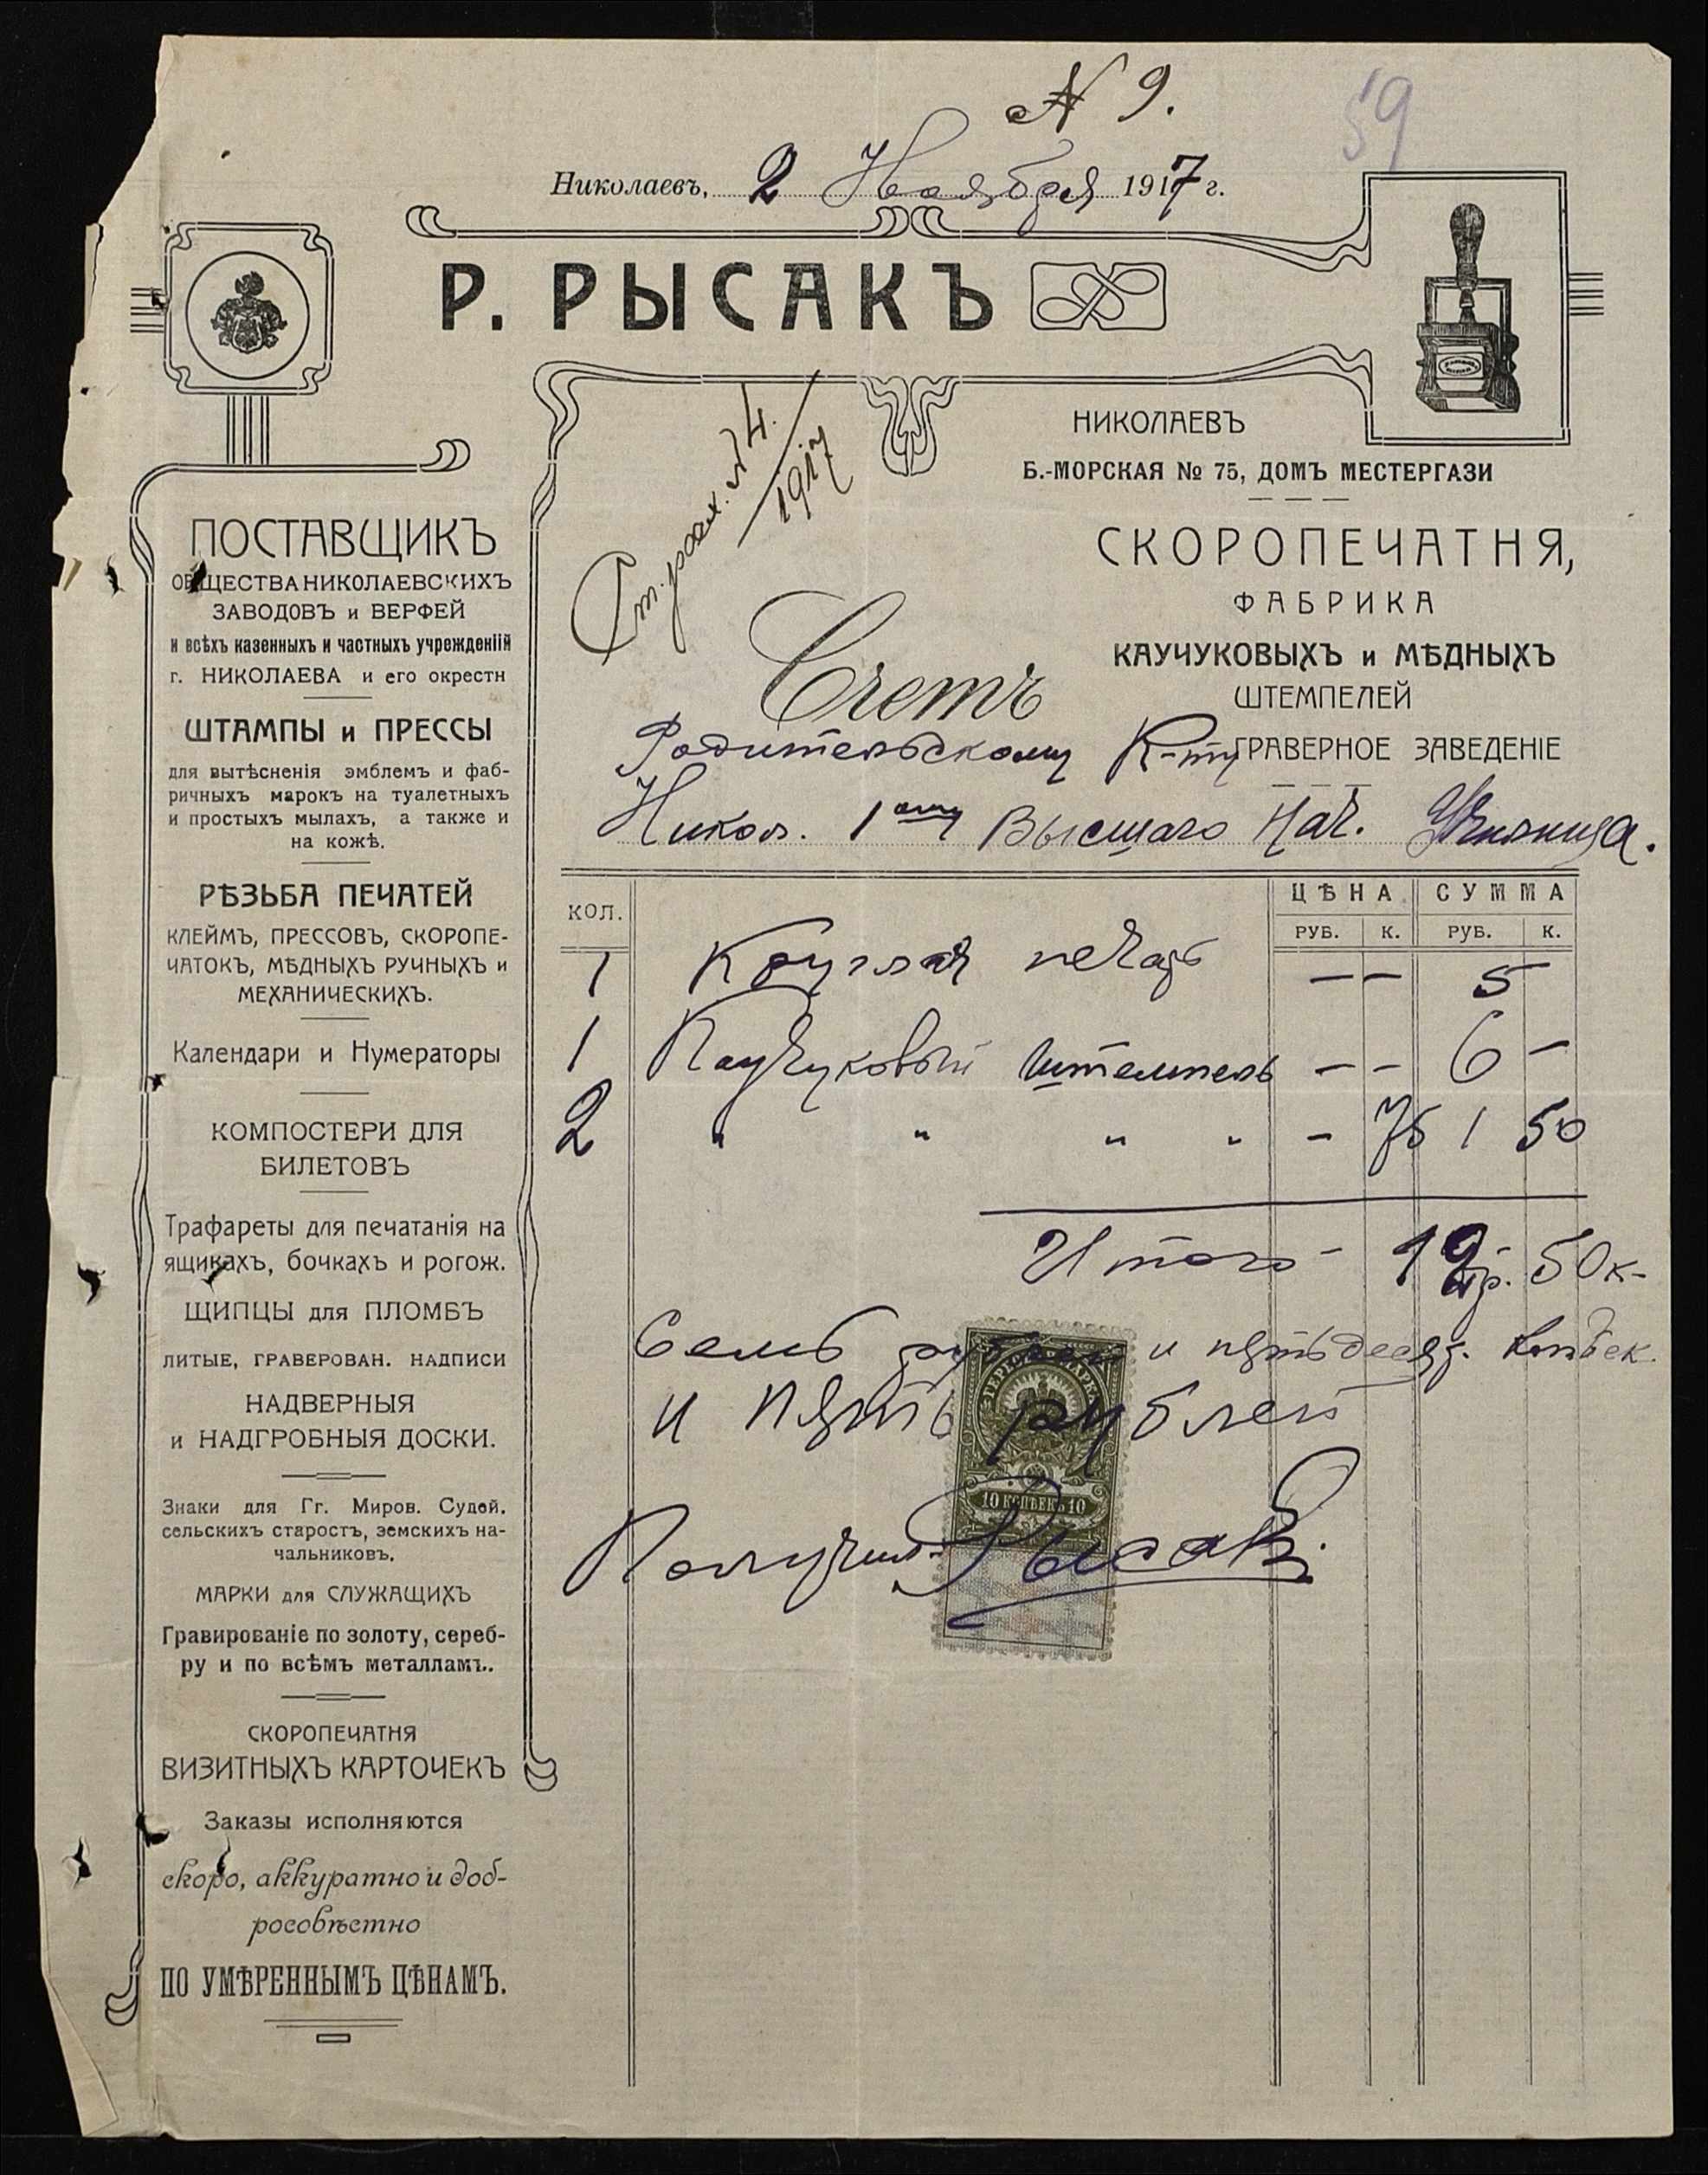 N 9.
59
Николаевъ, 2 Ноября 1917 г.
Р. РЫСАКЪ
НИКОЛАЕВЪ
Б.-МОРСКАЯ № 75, ДОМЪ МЕСТЕРГАЗИ
СКОРОПЕЧАТНЯ,
ФАБРИКА
КАУЧУКОВЫХЪ и МѢДНЫХЪ
ШТЕМПЕЛЕЙ
ГРАВЕРНОЕ ЗАВЕДЕНІЕ
Ст. расх. N 4.
1917
Счетъ
Родительскому К-ту
Никол. 1ому Высшаго Нач. Училища.
ПОСТАВЩИКЪ
ОБЩЕСТВА НИКОЛАЕВСКИХЪ
ЗАВОДОВЪ и ВЕРФЕЙ
и всѣхъ казенныхъ и частныхъ учрежденіій
г. НИКОЛАЕВА и его окрестн
ШТАМПЫ и ПРЕССЫ
для вытѣсненія эмблемъ и фаб-
ричныхъ марокъ на туалетныхъ
и простыхъ мылахъ, а также и
на кожѣ.
РѢЗЬБА ПЕЧАТЕЙ
КЛЕЙМЪ, ПРЕССОВЪ, СКОРОПЕ-
ЧАТОКЪ, МѢДНЫХЪ РУЧНЫХЪ и
МЕХАНИЧЕСКИХЪ.
Календари и Нумераторы
КОМПОСТЕРИ ДЛЯ
БИЛЕТОВЪ
Трафареты для печатанія на
ящикахъ, бочкахъ и рогож.
ЩИПЦЫ для ПЛОМБЪ
ЛИТЫЕ, ГРАВЕРОВАН. НАДПИСИ
НАДВЕРНЫЯ
и НАДГРОБНЫЯ ДОСКИ.
Знаки для Гг. Миров. Судей.
сельскихъ старостъ, земскихъ на-
чальниковъ.
МАРКИ для СЛУЖАЩИХЪ
Гравированіе по золоту, сереб-
ру и по всѣмъ металламъ.
СКОРОПЕЧАТНЯ
ВИЗИТНЫХЪ КАРТОЧЕКЪ
Заказы исполняются
скоро, аккуратно и доб-
росовѣстно
ПО УМѢРЕННЫМЪ ЦѢНАМЪ.
КОЛ. ЦѢНА СУММА
РУБ. К. РУБ. К.
1 Круглая печать — — 5 —
1 Каучуковый штемпель — — 6 —
2 " " " " — 75 1 50
Итого - 12 р. 50 к-
Семь рублей и пятьдесят. копѣек.
и пять рублей
ГЕРБОВАЯ МАРКА
10 КОПѢЕКЪ 10
Получил Рысакъ.